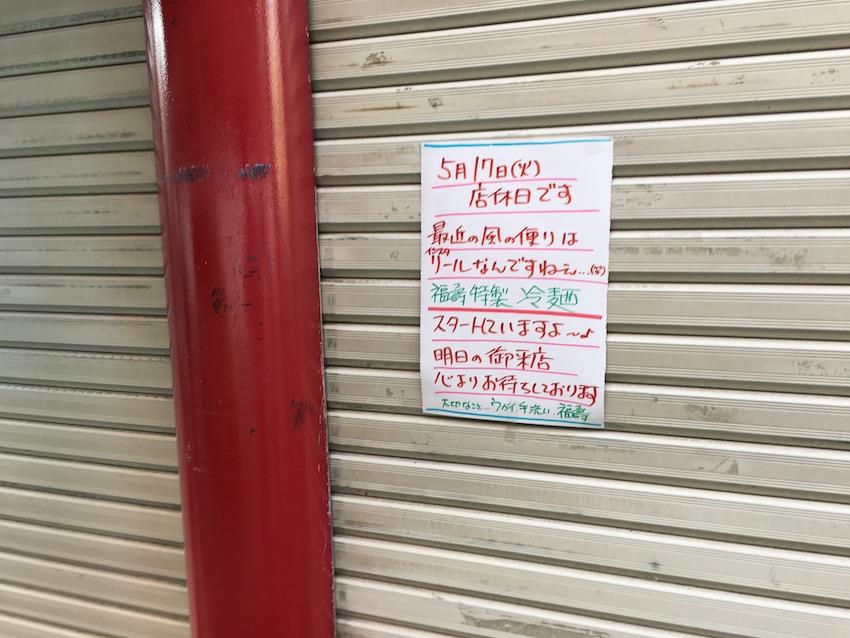 5月17日(火)
店休日です
最近の風の便りは
インスタ
リールなんですねぇ...(笑)
福寿特製 冷麺
スタートしていますよ〜♪
明日の御来店
心よりお待ちしております
大切なこと...ウガイ、手洗い、福寿